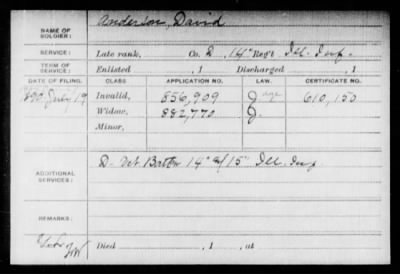 NAME OF SOLDIER: Anderson, David
SERVICE: Late rank, Co. D, 14" Reg't Ill. Inf.
TERM OF SERVICE: Enlisted , 1 Discharged , 1
DATE OF FILING. CLASS. APPLICATION NO. LAW. CERTIFICATE NO.
1890 July 19 Invalid, 856,909 J 610,150
Widow, 882,770 J.
Minor,
ADDITIONAL SERVICES: D. Vet Battn 14" & 15" Ill. Inf.
REMARKS:
Died , 1 , at